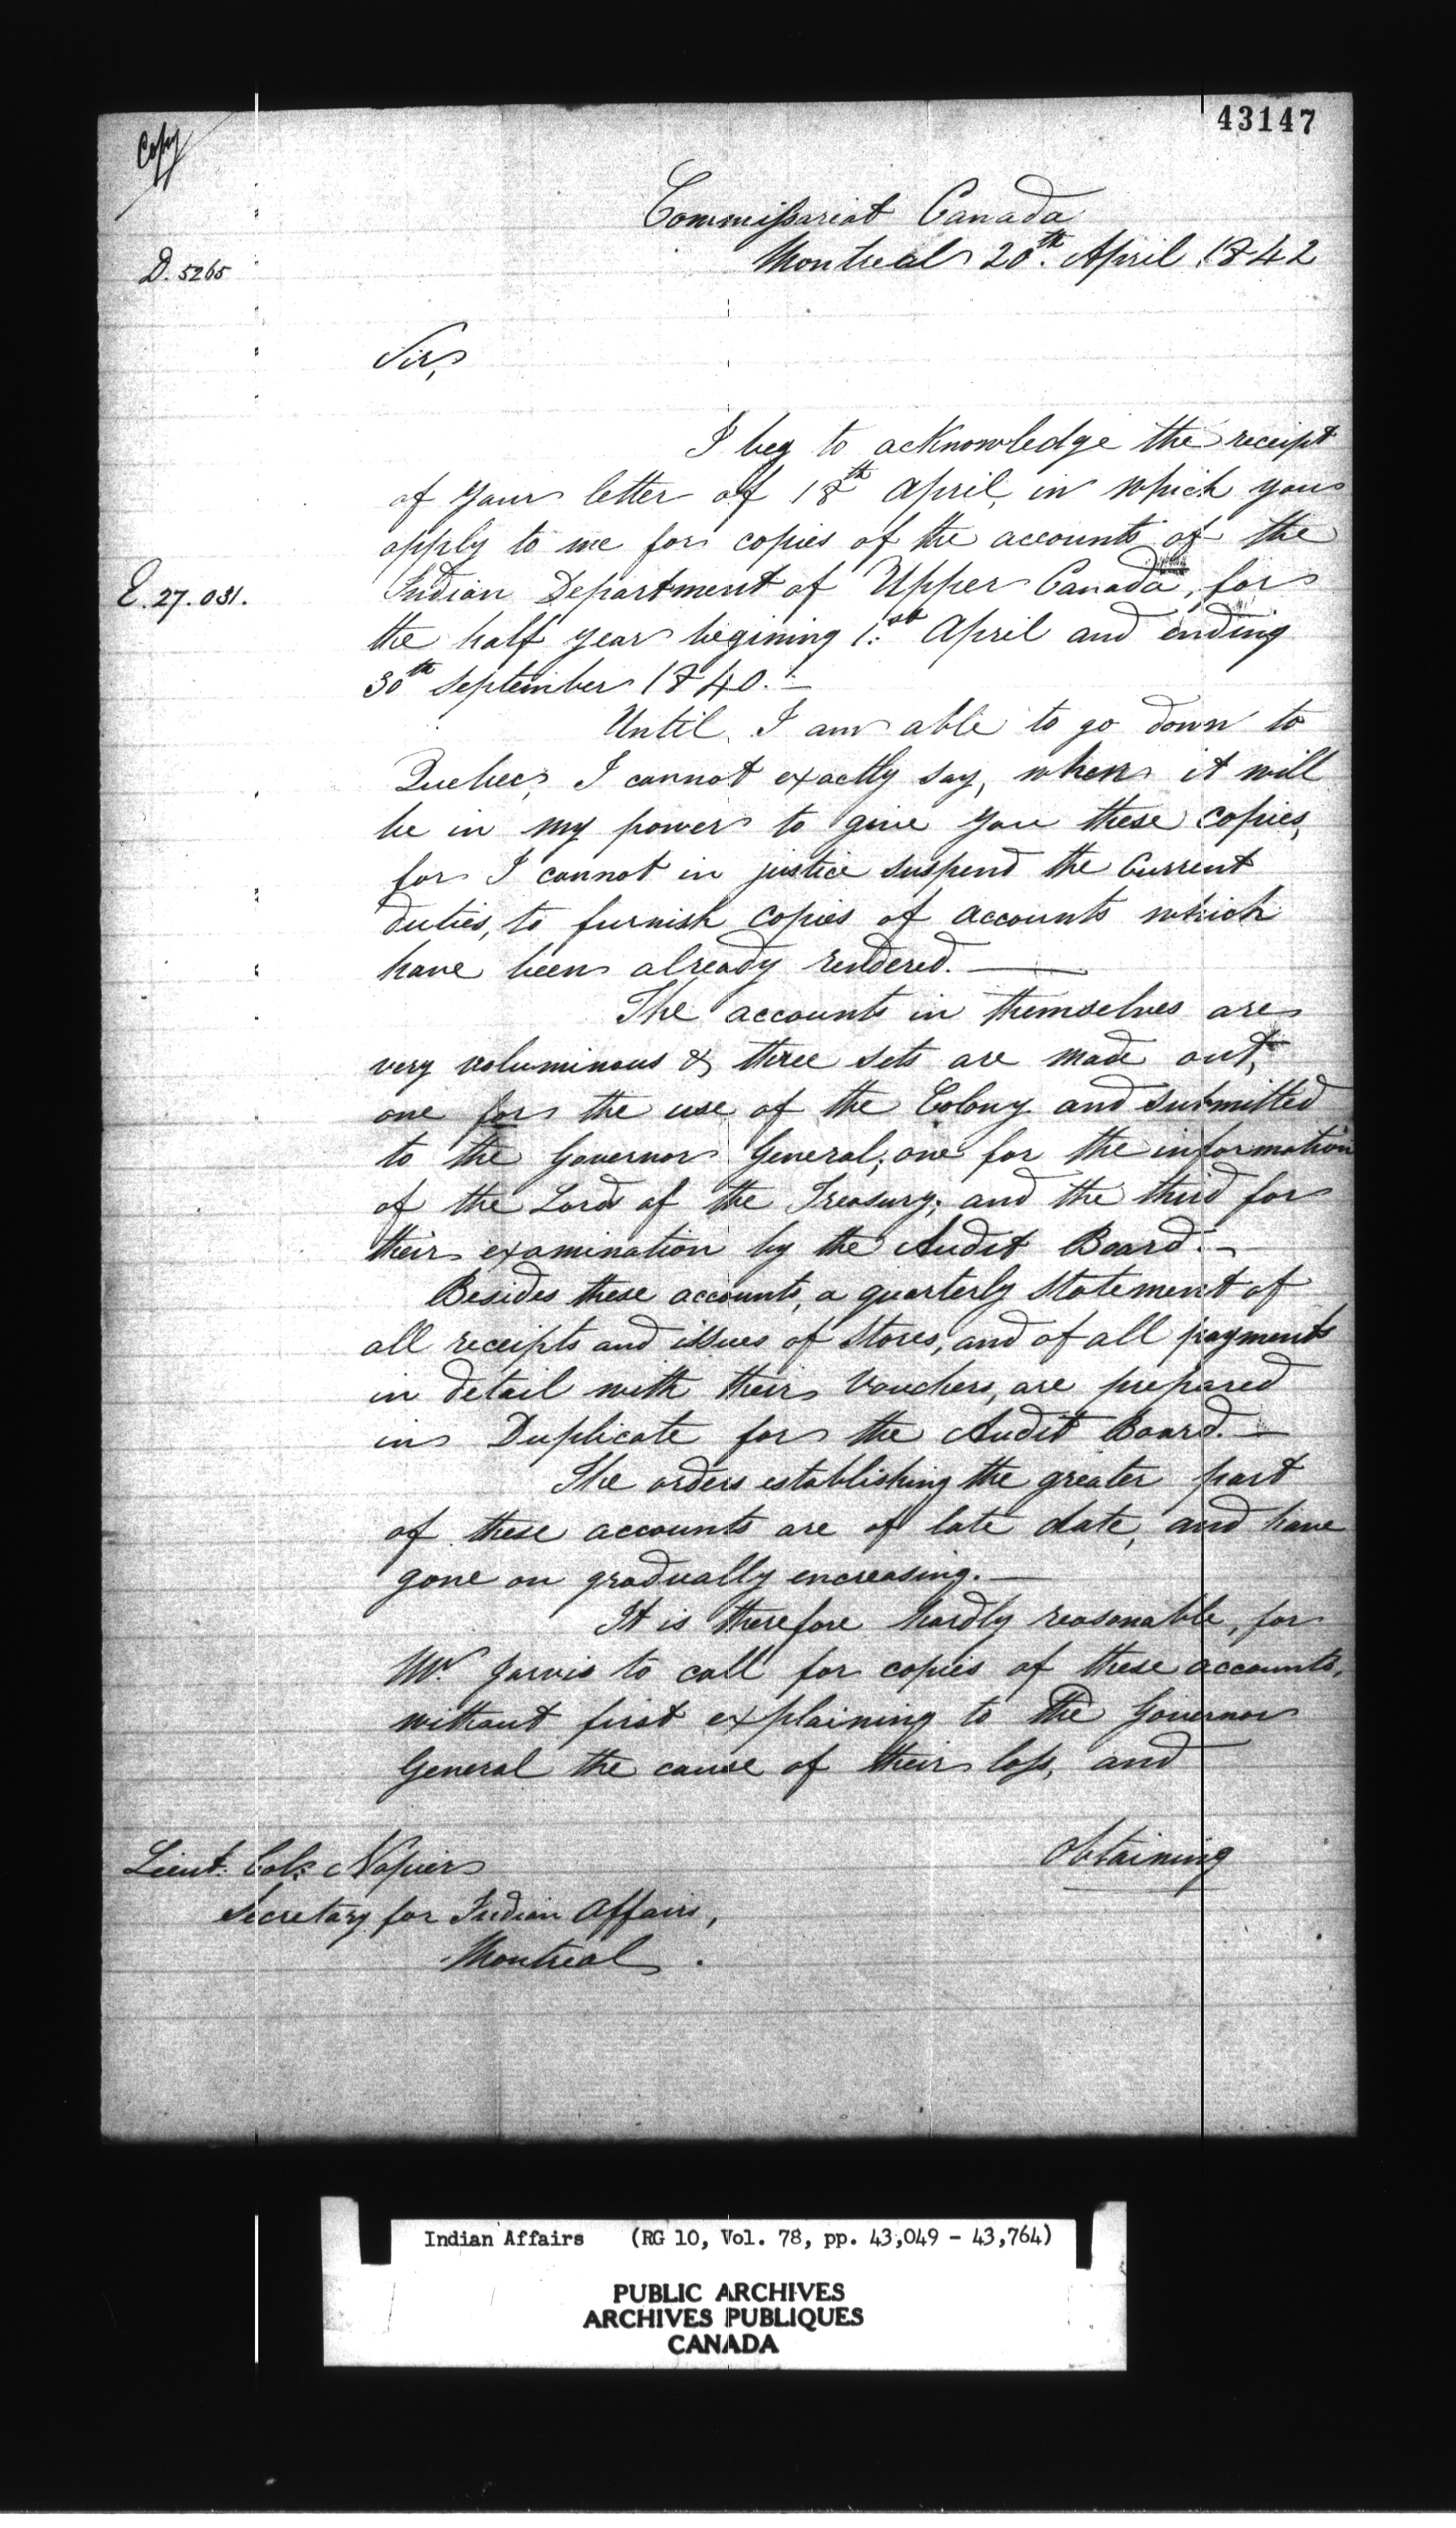 43147
Copy
Commissariat Canada
Montreal 20th. April 1842
D. 5265
Sir,
I beg to acknowledge the receipt
of your letter of 18th April, in which you
apply to me for copies of the accounts of the
E. 27.031.
Indian Department of Upper Canada, for
the half year begining 1st. April and ending
30th September 1840. —
Until I am able to go down to
Quebec, I cannot exactly say, when it will
be in my power to give you these copies,
for I cannot in justice suspend the Current
duties, to furnish copies of accounts which
have been already rendered. —
The accounts in themselves are
very voluminous & three sets are made out,
one for the use of the Colony and submitted
to the Governor General; one for the information
of the Lords of the Treasury; and the third for
their examination by the Audit Board. —
Besides these accounts, a quarterly Statement of
all receipts and issues of Stores, and of all payments
in detail with their Vouchers, are prepared
in Duplicate for the Audit Board. —
The orders establishing the greater part
of these accounts are of late date, and have
gone on gradually encreasing. —
It is therefore hardly reasonable, for
Mr. Jarvis to call for copies of these accounts,
without first explaining to the Governor
General the cause of their loss, and
obtaining
Lieut. Col. Napier
Secretary for Indian Affairs,
Montreal.
Indian Affairs (RG 10, Vol. 78, pp. 43,049 - 43,764)
PUBLIC ARCHIVES
ARCHIVES PUBLIQUES
CANADA